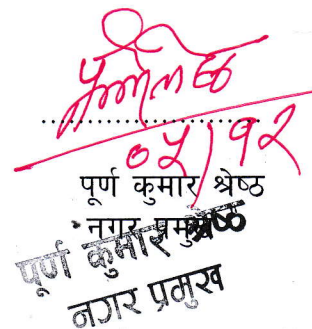 ०५/१२
पूर्ण कुमार श्रेष्ठ
नगर प्रमुख
पूर्ण कुमार श्रेष्ठ
नगर प्रमुख